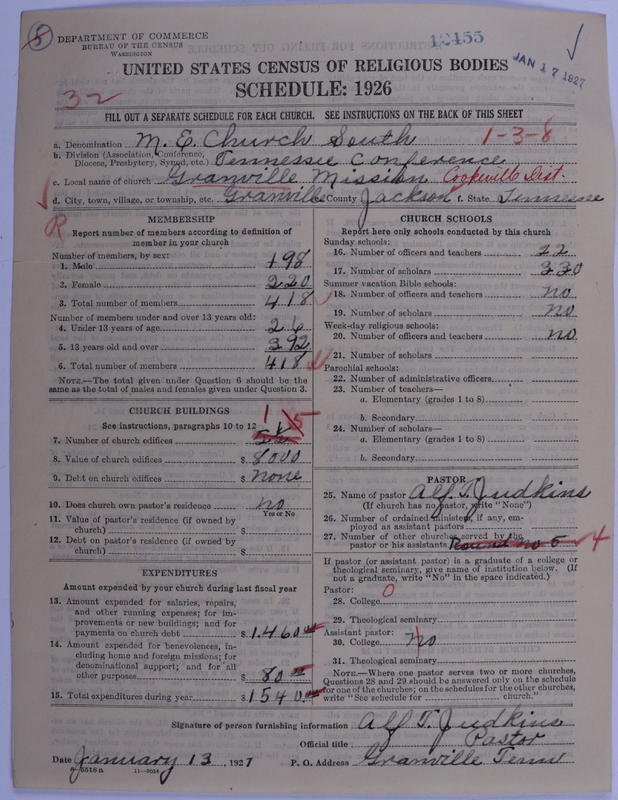 8
DEPARTMENT OF COMMERCE
BUREAU OF THE CENSUS
WASHINGTON
12455
JAN 17 1927
UNITED STATES CENSUS OF RELIGIOUS BODIES
SCHEDULE: 1926
32
FILL OUT A SEPARATE SCHEDULE FOR EACH CHURCH. SEE INSTRUCTIONS ON THE BACK OF THIS SHEET
a. Denomination M. E. Church South 1-3-8
b. Division (Association, Conference, Diocese, Presbytery, Synod, etc.) Tennessee Conference
c. Local name of church Granville Mission Cookeville Dist.
d. City, town, village, or township, etc. Granville County Jackson f. State Tennessee
R
MEMBERSHIP
Report number of members according to definition of
member in your church
Number of members, by sex:
1. Male 198
2. Female 220
3. Total number of members 418
Number of members under and over 13 years old:
4. Under 13 years of age 26
5. 13 years old and over 392
6. Total number of members 418
NOTE.—The total given under Question 6 should be the
same as the total of males and females given under Question 3.
CHURCH BUILDINGS
See instructions, paragraphs 10 to 12
1 5
7. Number of church edifices
8. Value of church edifices $ 8000
9. Debt on church edifices $ none
10. Does church own pastor's residence no
Yes or No
11. Value of pastor's residence (if owned by
church) $
12. Debt on pastor's residence (if owned by
church) $
EXPENDITURES
Amount expended by your church during last fiscal year
13. Amount expended for salaries, repairs,
and other running expenses; for im-
provements or new buildings; and for
payments on church debt $ 1460.00
14. Amount expended for benevolences, in-
cluding home and foreign missions; for
denominational support; and for all
other purposes $ 80.00
15. Total expenditures during year $ 1540.00
CHURCH SCHOOLS
Report here only schools conducted by this church
Sunday schools:
16. Number of officers and teachers 22
17. Number of scholars 330
Summer vacation Bible schools:
18. Number of officers and teachers no
19. Number of scholars no
Week-day religious schools:
20. Number of officers and teachers no
21. Number of scholars
Parochial schools:
22. Number of administrative officers
23. Number of teachers—
a. Elementary (grades 1 to 8)
b. Secondary
24. Number of scholars—
a. Elementary (grades 1 to 8)
b. Secondary
PASTOR
25. Name of pastor Alf. T. Judkins
(If church has no pastor, write "None")
26. Number of ordained ministers, if any, em-
ployed as assistant pastors
27. Number of other churches served by the
pastor or his assistants Round no 5 4
If pastor (or assistant pastor) is a graduate of a college or
theological seminary, give name of institution below. (If
not a graduate, write "No" in the space indicated.)
Pastor:
28. College 0
29. Theological seminary
Assistant pastor:
30. College no
31. Theological seminary
NOTE.—Where one pastor serves two or more churches,
Questions 28 and 29 should be answered only on the schedule
for one of the churches; on the schedules for the other churches,
write "See schedule for church."
Signature of person furnishing information Alf T. Judkins
Official title Pastor
Date January 13, 1927 P. O. Address Granville Tenn
8-5518a 11-9024